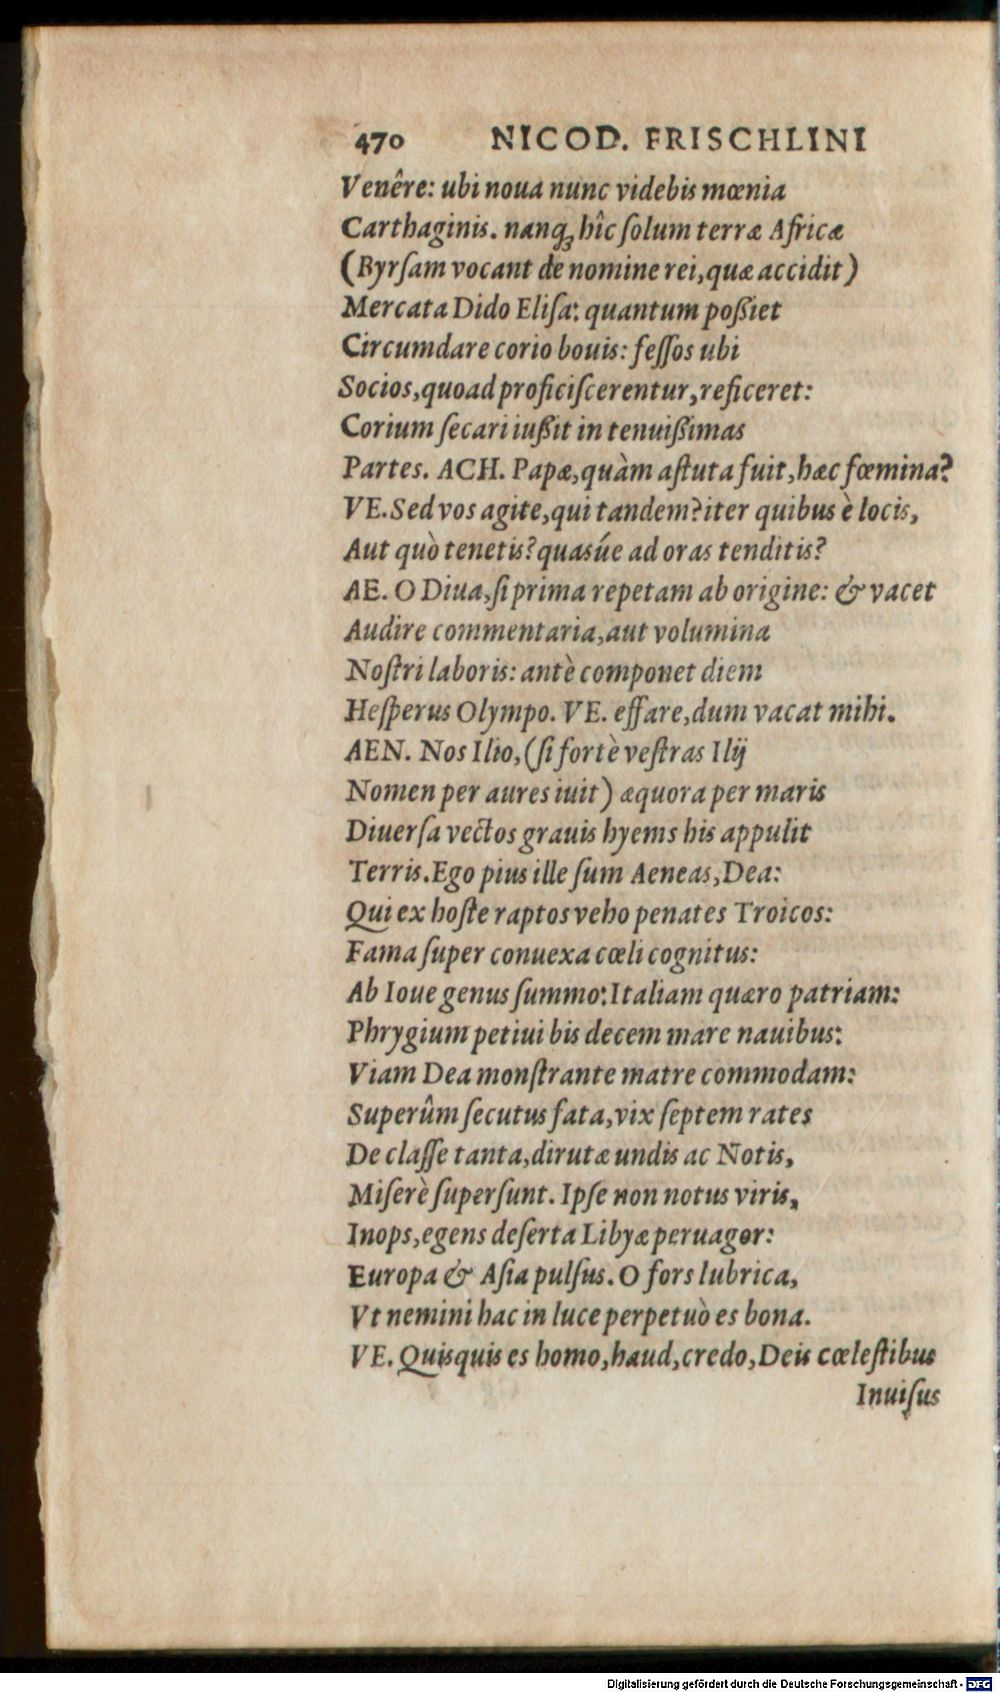 470 NICOD. FRISCHLINI
Venêre: ubi noua nunc videbis mœnia
Carthaginis. nanq; hîc ſolum terræ Africæ
(Byrſam vocant de nomine rei, quæ accidit)
Mercata Dido Eliſa: quantum poßiet
Circumdare corio bouis: feſſos ubi
Socios, quoad proficiſcerentur, reficeret:
Corium ſecari iußit in tenuißimas
Partes. ACH. Papæ, quàm aſtuta fuit, hæc fœmina?
VE. Sed vos agite, qui tandem? iter quibus è locis,
Aut quò tenetis? quasúe ad oras tenditis?
AE. O Diua, ſi prima repetam ab origine: & vacet
Audire commentaria, aut volumina
Noſtri laboris: antè componet diem
Heſperus Olympo. VE. effare, dum vacat mihi.
AEN. Nos Ilio, (ſi fortè veſtras Ilij
Nomen per aures iuit) æquora per maris
Diuerſa vectos grauis hyems his appulit
Terris. Ego pius ille ſum Aeneas, Dea:
Qui ex hoſte raptos veho penates Troicos:
Fama ſuper conuexa cœli cognitus:
Ab Ioue genus ſummo: Italiam quæro patriam:
Phrygium petiui bis decem mare nauibus:
Viam Dea monſtrante matre commodam:
Superûm ſecutus fata, vix ſeptem rates
De claſſe tanta, dirutæ undis ac Notis,
Miſerè ſuperſunt. Ipſe non notus viris,
Inops, egens deſerta Libyæ peruagor:
Europa & Aſia pulſus. O fors lubrica,
Vt nemini hac in luce perpetuò es bona.
VE. Quisquis es homo, haud, credo, Deis cœleſtibus
Inuiſus
Digitalisierung gefördert durch die Deutsche Forschungsgemeinschaft - DFG